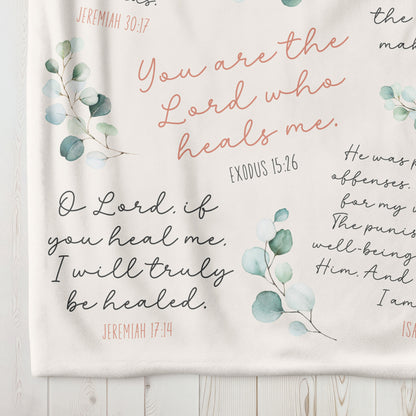 JEREMIAH 30:17
the
mak
You are the
Lord who
heals me.
EXODUS 15:26
He was p
offenses.
for my w
The punis
well-being
Him. And
I am
ISA
O Lord, if
you heal me,
I will truly
be healed.
JEREMIAH 17:14